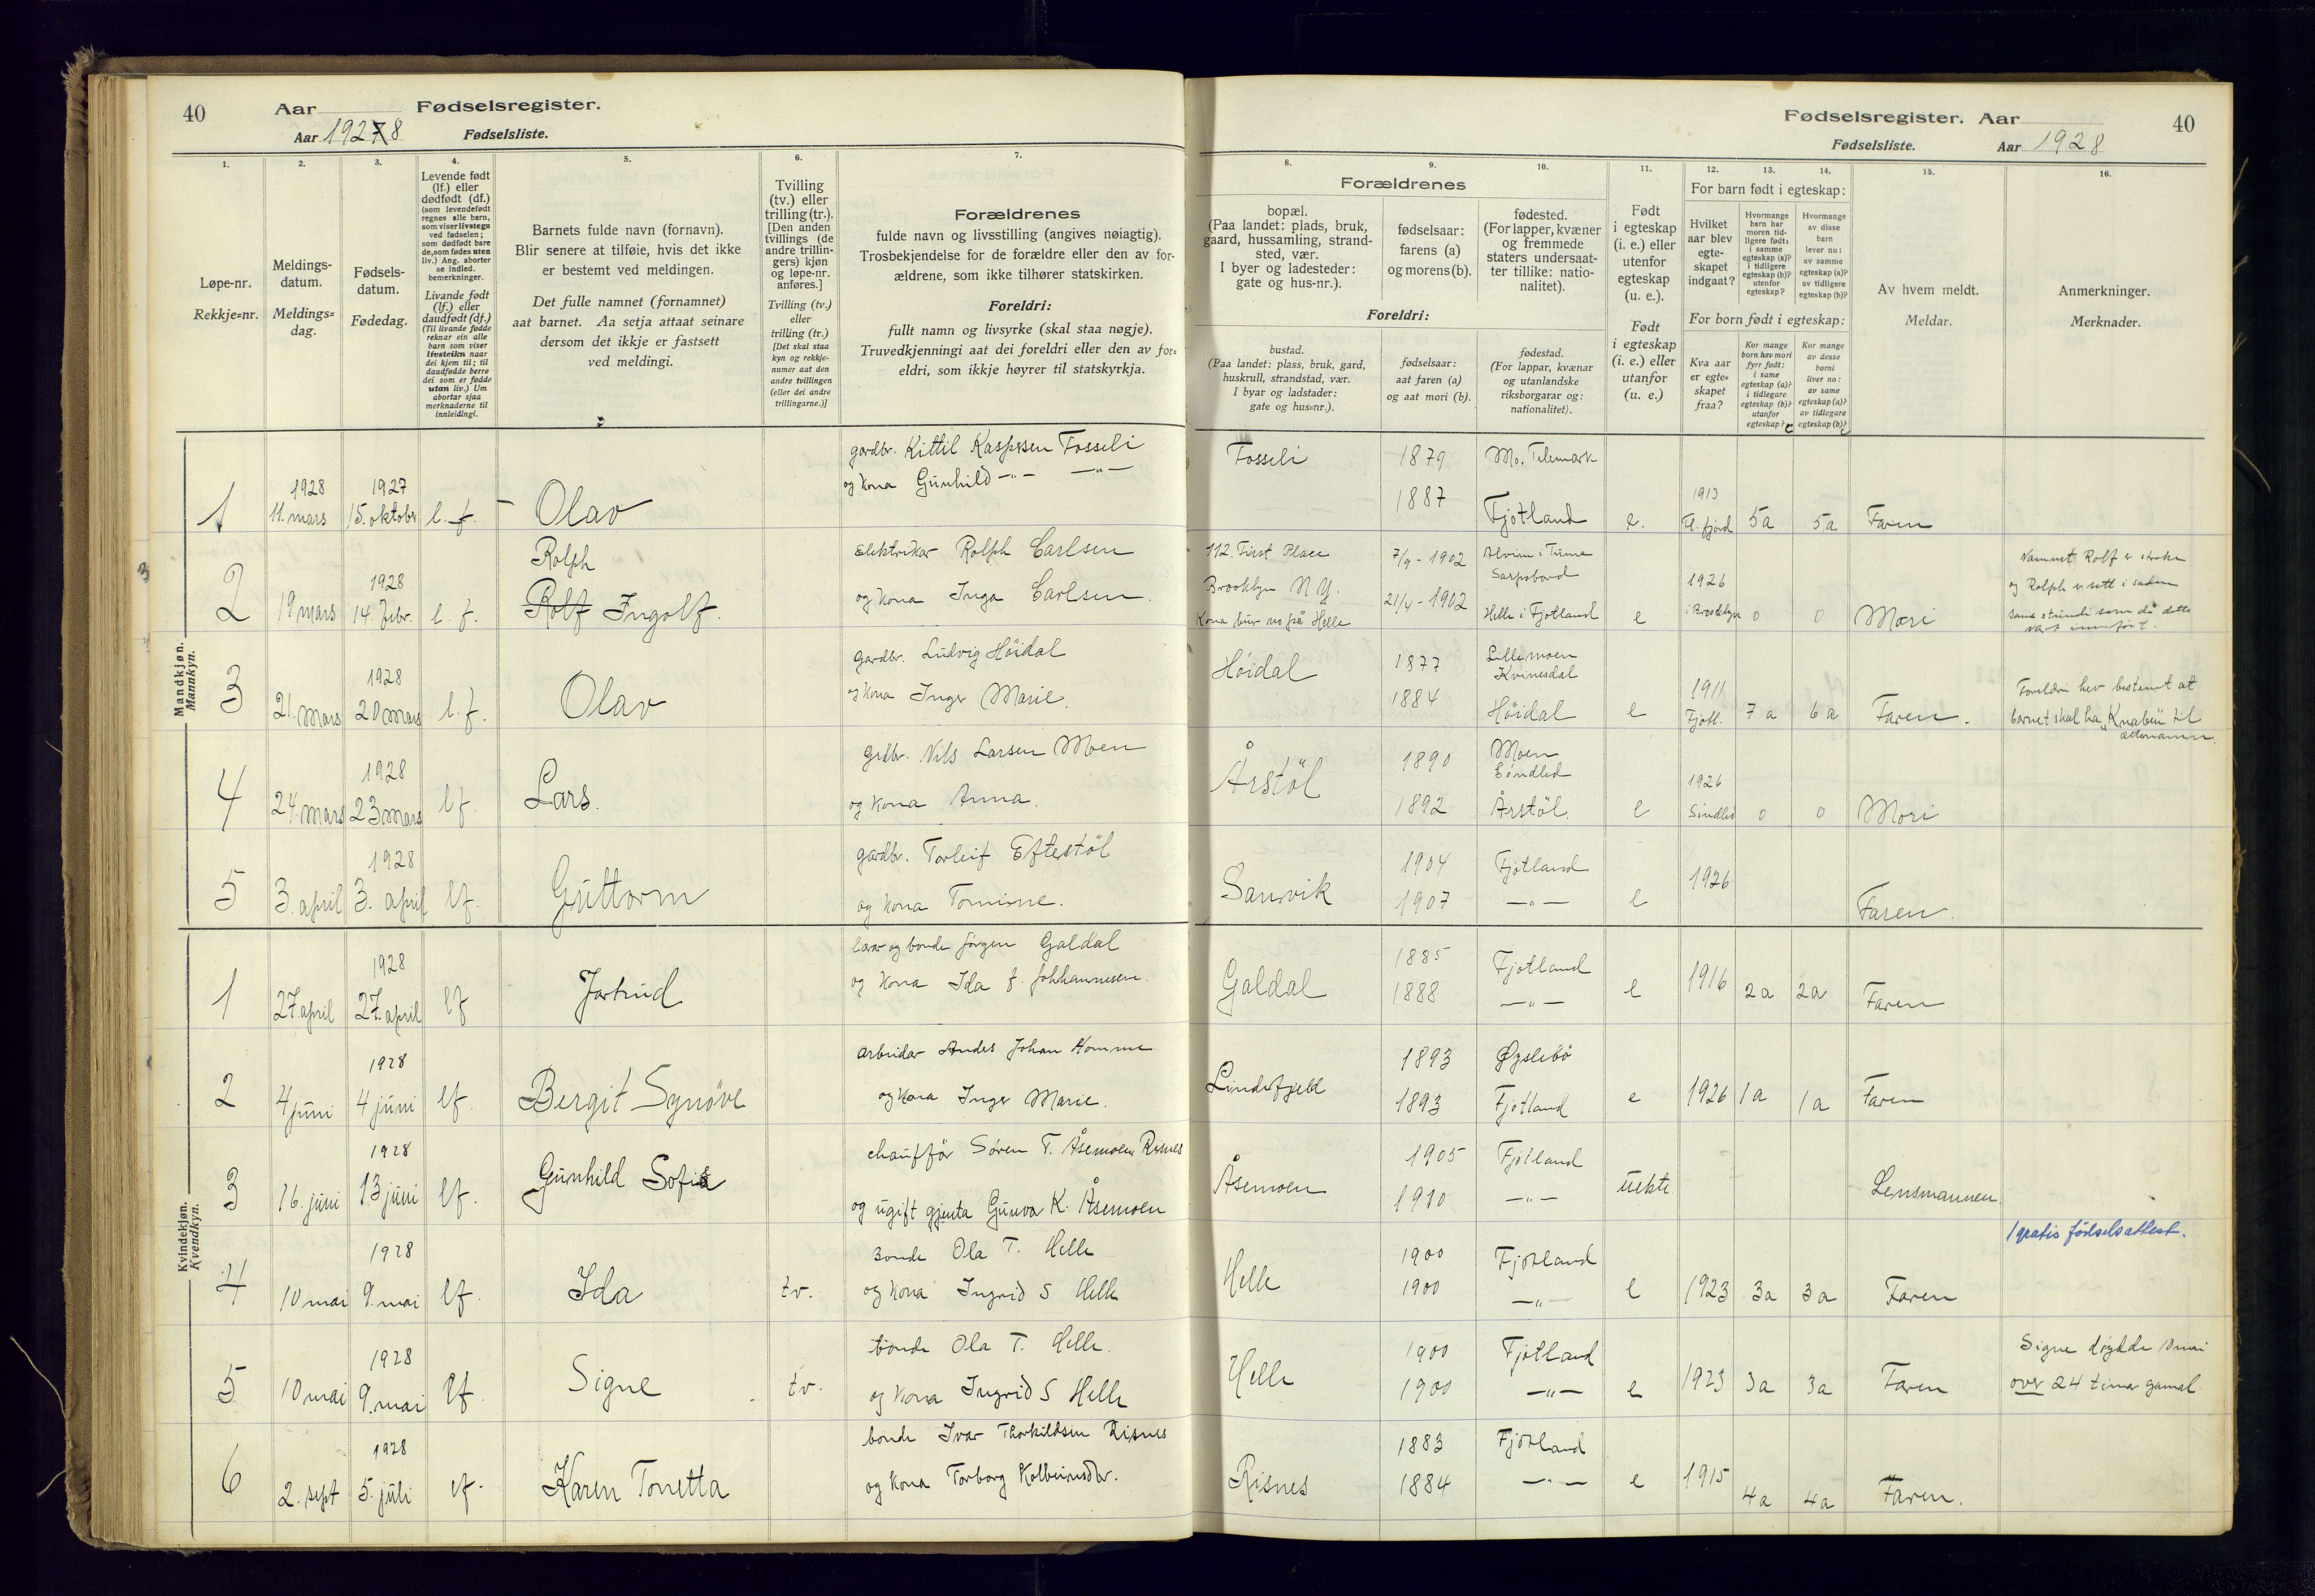 40
Aar Fødselsregister.
Aar 19278 Fødselsliste.
1.
2.
3.
4.
5.
6.
7.
Løpe-nr.
Rekkje=nr.
Meldings-
datum.
Meldings=
dag.
Fødsels-
datum.
Fødedag.
Levende født
(lf.) eller
dødfødt (df.)
(som levendefødt
regnes alle barn,
som viser livstegn
ved fødselen;
som dødfødt bare
de, som fødes uten
liv.) Ang. aborter
se indled.
bemerkninger.
Livande født
(lf.) eller
daudfødt (df.)
(Til livande fødde
reknar ein alle
barn som viser
livsteikn naar
dei kjem til; til
daudfødde berre
dei som er fødde
utan liv.) Um
abortar sjaa
merknaderne til
innleidingi.
Barnets fulde navn (fornavn).
Blir senere at tilføie, hvis det ikke
er bestemt ved meldingen.
Det fulle namnet (fornamnet)
aat barnet. Aa setja attaat seinare
dersom det ikkje er fastsett
ved meldingi.
Tvilling
(tv.) eller
trilling (tr.).
[Den anden
tvillings (de
andre trillin-
gers) kjøn
og løpe-nr.
anføres.]
Tvilling (tv.)
eller
trilling (tr.)
[Det skal staa
kyn og rekkje-
numer aat den
andre tvillingen
(eller dei andre
trillingarne.)]
Forældrenes
fulde navn og livsstilling (angives nøiagtig).
Trosbekjendelse for de forældre eller den av for-
ældrene, som ikke tilhører statskirken.
Foreldri:
fullt namn og livsyrke (skal staa nøgje).
Truvedkjenningi aat dei foreldri eller den av for=
eldri, som ikkje høyrer til statskyrkja.
Mandkjøn.
Mannkyn.
1
1928
11. mars
1927
15. oktobr
l. f.
Olav
gardbr. Kittil Kaspersen Fosseli
og kona Gunhild -"- -"-
2
19 mars
1928
14. febr.
l. f.
Rolph
Rolf Ingolf.
Elektrikar Rolph Carlsen
og kona Inga Carlsen.
3
21. mars
1928
20 mars
l. f.
Olav
Gardbr. Ludvig Höidal
og kona Inger Marie.
4
24. mars
1928
23 mars
lf.
Lars.
Grdbr. Nils Larsen Moen
og kona Anna.
5
3. april
1928
3. april
lf.
Guttorm
gardbr. Torleif Eftestöl
og kona Tomine.
Kvindekjøn.
Kvendkyn.
1
27. april
1928
27. april
lf
Jartrud
lærar og bonde Jörgen Galdal
og kona Ida f. Johhannesen.
2
4 juni
1928
4 juni
lf.
Bergit Synöve
Arbeidar Andes Johan Homme
og kona Inger Marie.
3
16. juni
1928
13 juni
lf.
Gunhild Sofie
chaufför Sören T. Åsemoen Risnes
og ugift gjenta Gunva K. Åsemoen
4
10 mai
1928
9. mai
lf.
Ida
tv.
Bonde Ola T. Helle
og kona Ingrid S Helle
5
10 mai
1928
9. mai
lf.
Signe
tv.
bonde Ola T. Helle.
og kona Ingrid S Helle
6
2. sept
1928
5. juli
lf.
Karen Tonetta
bonde Ivar Thorkildsen Risnes
og kona Torborg Kolbeinsdtr.
Fødselsregister. Aar
40
Fødselsliste. Aar 1928
8.
9.
10.
11.
12.
13.
14.
15.
16.
Forældrenes
bopæl.
(Paa landet: plads, bruk,
gaard, hussamling, strand-
sted, vær.
I byer og ladesteder:
gate og hus-nr.).
fødselsaar:
farens (a)
og morens (b).
fødested.
(For lapper, kvæner
og fremmede
staters undersaat-
ter tillike: natio-
nalitet).
Foreldri:
bustad.
(Paa landet: plass, bruk, gard,
huskrull, strandstad, vær.
I byar og ladstader:
gate og hus=nr.).
fødselsaar:
aat faren (a)
og aat mori (b).
fødestad.
(For lappar, kvænar
og utanlandske
riksborgarar og:
nationalitet).
Født
i egteskap
(i. e.) eller
utenfor
egteskap
(u. e.).
Født
i egteskap
(i. e.) eller
utanfor
(u. e.)
For barn født i egteskap:
Hvilket
aar blev
egte-
skapet
indgaat?
Hvormange
barn har
moren tid-
ligere født:
i samme
egteskap (a)?
i tidligere
egteskap (b)?
utenfor
egteskap?
Hvormange
av disse
barn
lever nu:
av samme
egteskap (a)?
av tidligere
egteskap (b)?
For born født i egteskap:
Kva aar
er egte=
skapet
fraa?
Kor mange
born hev mori
fyrr født:
i same
egteskap (a)?
i tidlegare
egteskap (b)?
utanfor
egteskap?
Kor mange
av desse
borni
liver no:
av same
egteskap (a)?
av tidlegare
egteskap (b)?
Av hvem meldt.
Meldar.
Anmerkninger.
Merknader.
Fosseli
1879
1887
Mo. Telemark
Fjotland
e.
1913
Fl. fjord
5a
5a
Faren
112. First Place
Brooklyn N.Y.
Kona bur no på Helle
7/9 - 1902
21/4 - 1902
Alvim i Tune
Sarpsbord
Helle i Fjotland
e
1926
i Brooklyn
0
0
Mori
Namnet Rolf er stroke
og Rolph er sett i saden
same stundi som då dette
vart innfört.
Höidal
1877
1884
Lillemoen
Kvinesdal
Höidal
e
1911
Fjotl.
7a
6a
Faren.
Foreldri hev bestemt at
barnet skal ha „Knaben til
ættenamn.
Årstöl
1890
1892
Moen
Söndled
Årstöl.
e
1926
Söndled
0
0
Mori
Sanvik
1904
1907
Fjotland
-"-
e
1926
Faren.
Galdal
1885
1888
Fjotland
-"-
e
1916
2a
2a
Faren
Lindefjeld
1893
1893
Øyslebö
Fjotland
e
1926
1a
1a
Faren
Åsemoen
1905
1910
Fjotland
-"-
uekte
Lensmannen.
1 gratis födselsattest.
Helle
1900
1900
Fjotland
-"-
e
1923
3a
3a
Faren
Helle
1900
1900
Fjotland
-"-
e
1923
3a
3a
Faren
Signe döydde 10 mai
over 24 timar gamal
Risnes
1883
1884
Fjotland
-"-
e
1915
4a
4a
Faren.